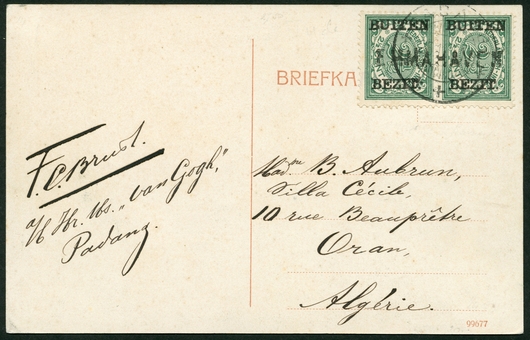 BUITEN BUITEN
EMMAHAVEN
BEZIT. BEZIT.
BRIEFKA
F.C. Brust.
a/b Hr. Ms. „van Gogh,"
Padang.
Madme B. Aubrun,
Villa Cécile,
10 rue Beauprêtre
Oran,
Algérie.
99677